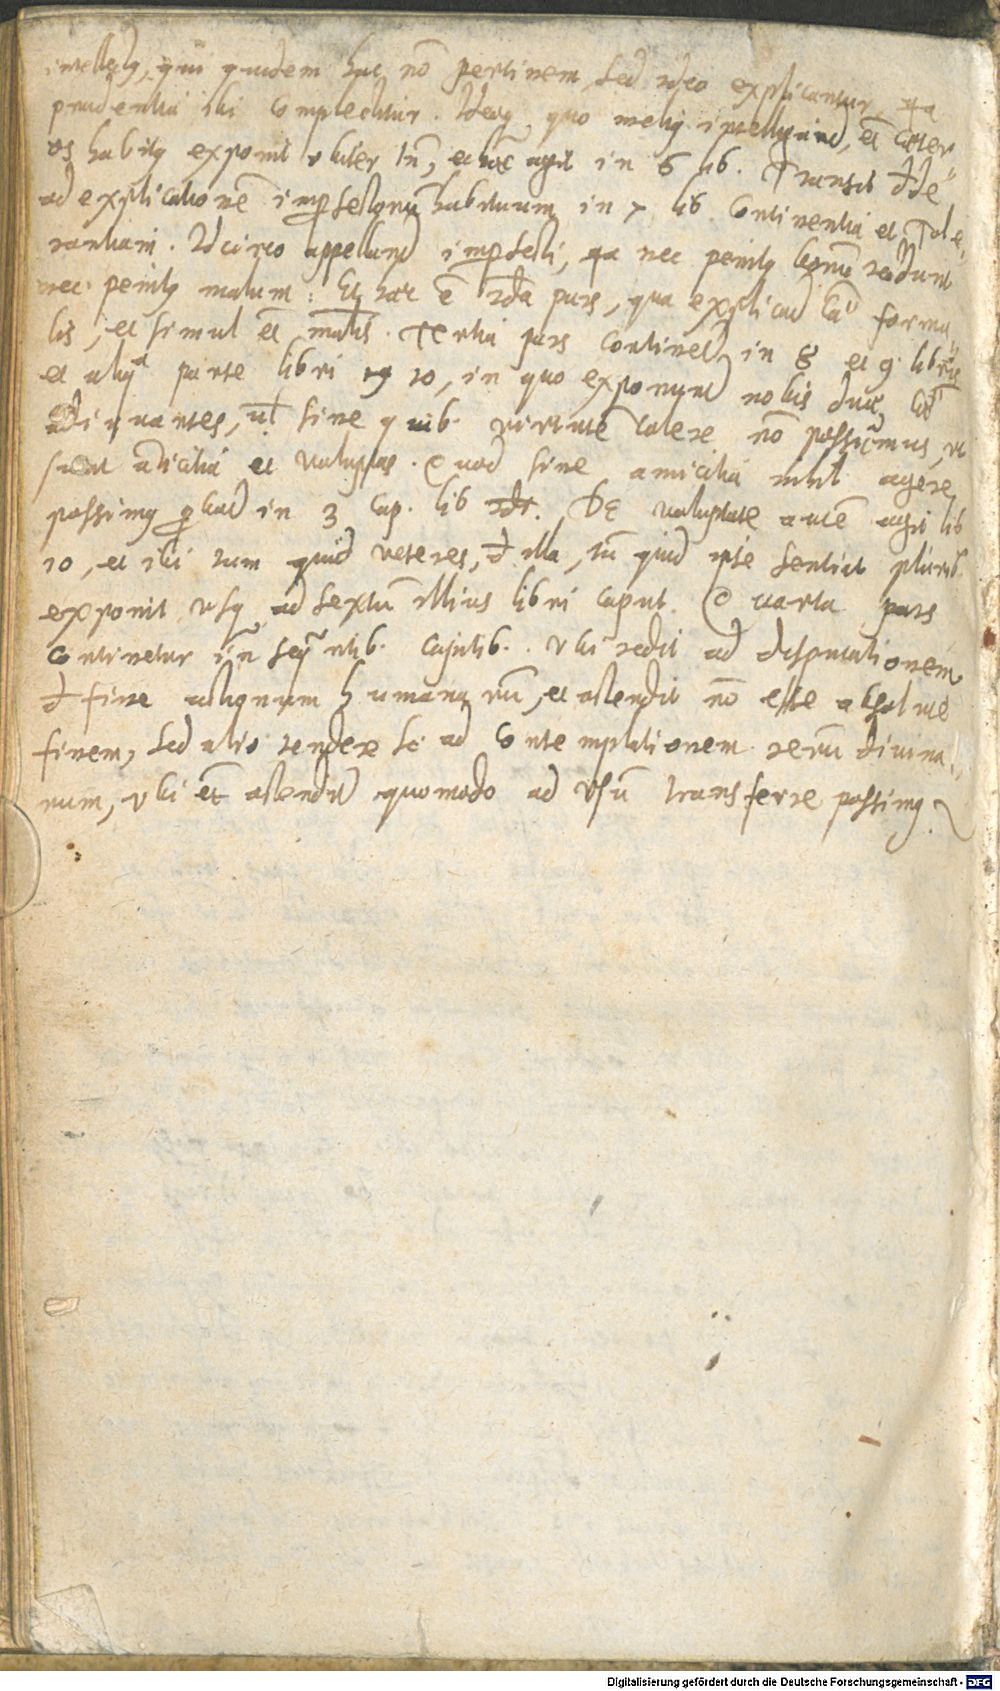 intellectꝯ, qui quidem huc nō pertinent, sed ideo explicantur, qa
prudentia ibi complectitur. Ideoq quo meliꝯ intelligant, et cæter
os habitꝯ exponit obiter tn̄, et hæc agit in 6 lib. Transit
ad explicationē imperfectorū habituum in 7 lib. Continentiā et Tole
rantiam. Idcirco appellant imperfecti, qa nec penitꝯ bonū reddunt
nec penitꝯ malum: Et hæc ē 2da pars, qua explicat cāꝫ forma
lis, et simul et matis. Tertia pars continet in 8 et 9 libris
et aliqua parte libri 10, in quo exponunt nobis duæ
Adiuuantes, sine quib. virtutē colere nō possumus, ut
sunt amicitia et voluptas. Quod sine amicitia nihil agere
possimꝯ probat in 3 cap. lib. DE voluptate autē agit lib
10, et ibi tum quid veteres, đ illa, tū quid ipse sentiat plurib.
exponit usq ad sextū illius libri caput. Quarta pars
continetur in sequentib. capitib. Vbi redit ad disputationem
đ fine actionum humanarū, et ostendit nō esse absolute
finem, sed alio tendere sc ad contemplationem rerū diuina
rum, vbi et ostendit quomodo ad vsū transferre possimꝯ.
Digitalisierung gefördert durch die Deutsche Forschungsgemeinschaft - DFG